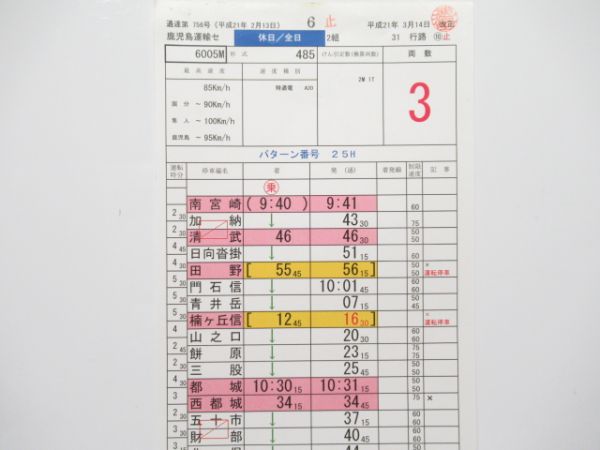 通達第 756号(平成21年 2月13日) 6 止 平成21年 3月14日 改正
鹿児島運輸セ 休日/全日 2組 31 行路 止
6005M 形式 485 けん引定数(換算両数) 両数
最高速度 速度種別 2M 1T 3
85Km/h 特通電 A20
国分 ~90Km/h
隼人 ~100Km/h
鹿児島 ~95Km/h
パターン番号 25H
運転時分 停車場名 着 発(通) 着発線 制限速度 記事
乗
南宮崎 (9:40) 9:41 60
2 30 加納 ↓ 43 30 75
2 清武 46 46 30 50 50
4 45 日向沓掛 ↓ 51 15 60
4 30 田野 [55 45 56 15] 50 50 × 運転停車
5 30 門石信 ↓ 10:01 45 60
5 30 青井岳 ↓ 07 15 50 45
5 30 楠ヶ丘信 [12 45 16 30] 50 50 × 運転停車
4 山之口 ↓ 20 30 60 75
2 45 餅原 ↓ 23 15 75
2 30 三股 ↓ 25 45 50
都城 10:30 15 10:31 15 50 60
3 西都城 34 15 34 45 75 ×
2 30 五十市 ↓ 37 15
3 30 財部 ↓ 40 45